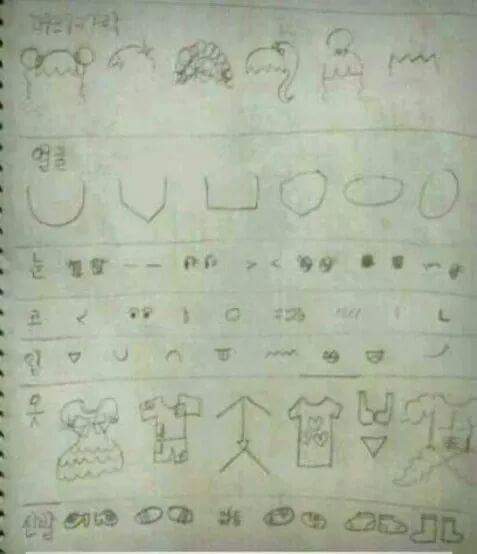 머리카락
얼굴
눈
코
입
옷
신발